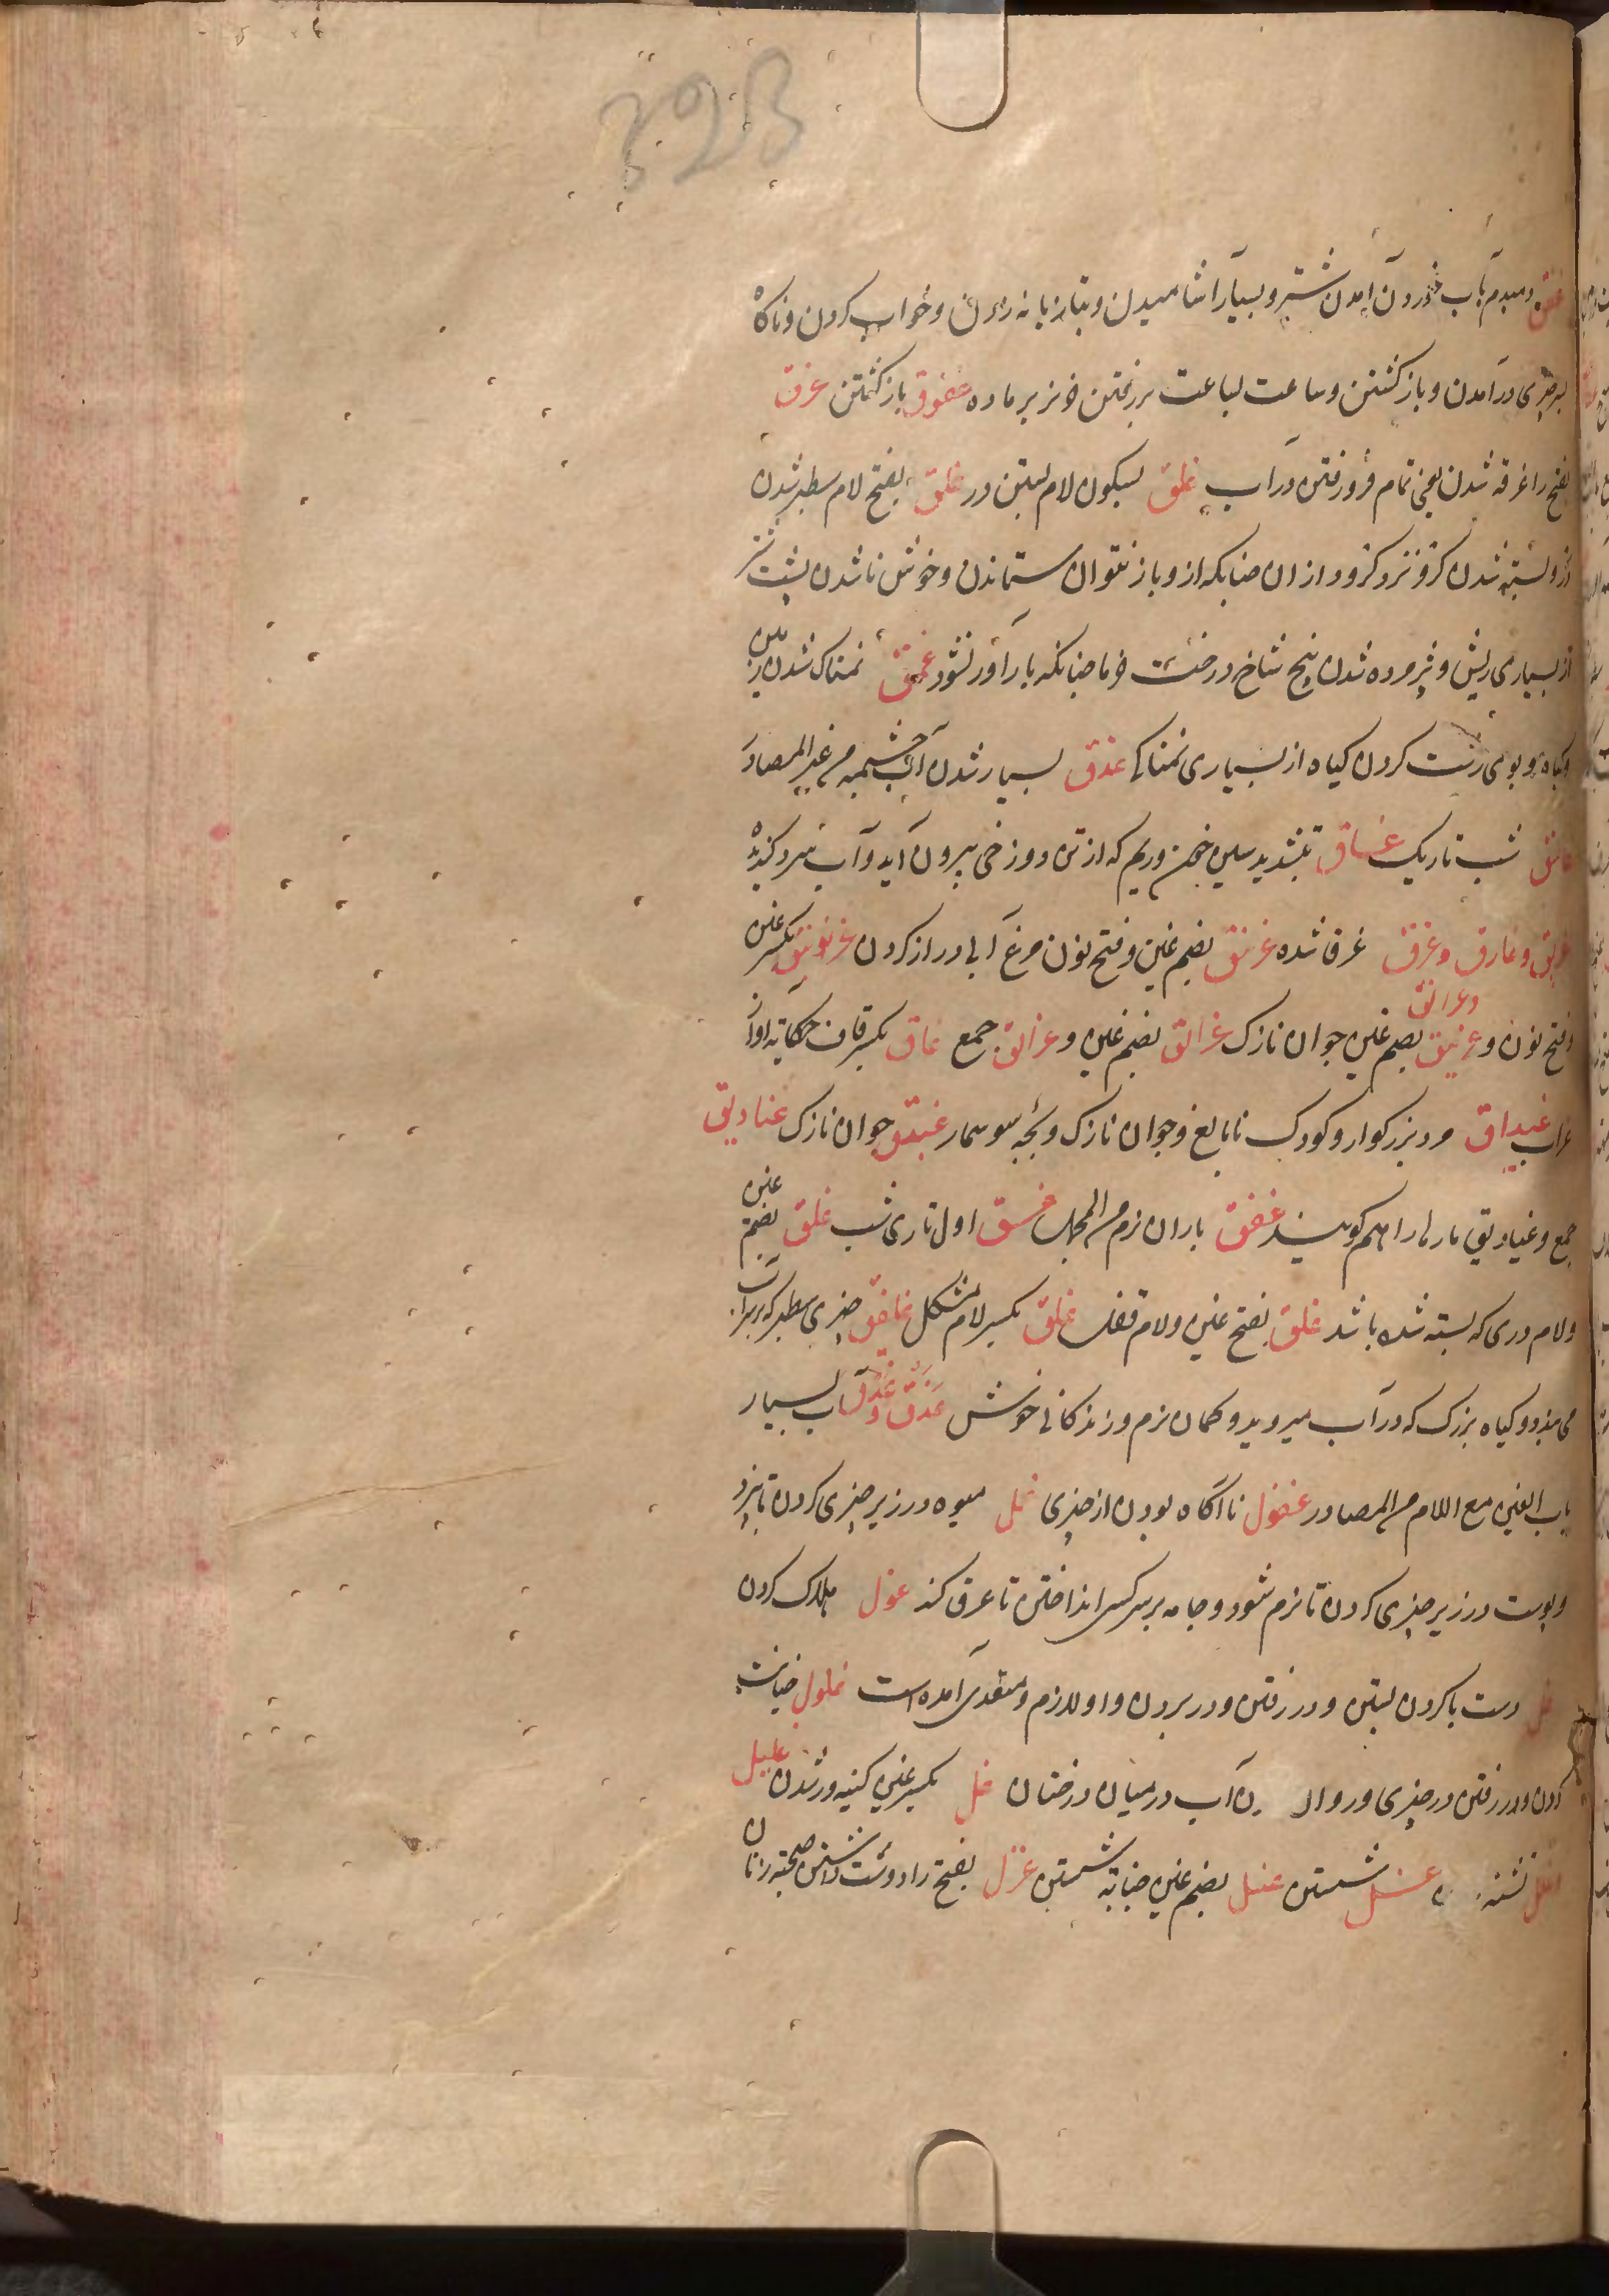 غفق دمبدم بآب خوردن آمدن شتر و بسیار آشامیدن و بتازیانه زدن و خواب کردن و ناگاه
بر چیزی درآمدن و باز گشتن و ساعت بساعت برجستن خر نر بر ماده غفوق باز گشتن غرق
بفتح را غرقه شدن یعنی تمام فرو رفتن در آب غلق بسکون لام بستن در غلق بفتح لام سطبر شدن
و بسته شدن گرو نزد گرو دار ازان چنانکه ازو باز نتوان ستاندن و خوش ناشدن پشت شتر
از بسیاری ریش و پژمرده شدن بیخ شاخ درخت خرما چنانکه بارآور نشود غمق نمناک شدن زمین
و گیاه و بوی زشت کردن گیاه از بسیاری نمناکی غدق بسیار شدن آب چشمه من غیر المصادر
غاسق شب تاریک غساق بتشدید سین خون و ریم که از تن دوزخی بیرون آید و آب سرد گنده
غریق و غارق و غرق غرق شده غرنیق بضم غین و فتح نون مرغ آبی دراز گردن غرنوق بکسر غین
و فتح نون و غرنیق و غرانق بضم غین جوان نازک غرانق بضم غین و غرانق جمع غاق بکسر قاف حکایة آواز
غراب غیداق مرد بزرگوار و کودک نابالغ و جوان نازک و بچه سوسمار غیدق جوان نازک غیادیق
جمع و غیادیق مارها را هم گویند غفق باران نرم من المجمل غسق اول تاری شب غلق بضم غین
و لام دری که بسته شده باشد غلق بفتح غین و لام قفل غلق بکسر لام مشکل غلفق چیزی سطبر که بر سر آب
می‌بندد و گیاه بزرگ که در آب میروید و کمان نرم و زندگانی خوش غدق و غدق آب بسیار
باب الغین مع اللام من المصادر غفول ناآگاه بودن از چیزی غمل میوه در زیر چیزی کردن تا بپزد
و پوست در زیر چیزی کردن تا نرم شود و جامه بر سر کس انداختن تا عرق کند غول هلاک کردن
غل دست با گردن بستن و در رفتن و در بردن و او لازم و متعدی آمده است غلول خیانت
کردن و در رفتن در چیزی و روان آب در میان درختان غل بکسر غین کینه‌ور شدن غلیل
غلل تشنه غسل شستن غسل بضم غین جنابة شستن غزل بفتح زا دوست داشتن صحبة زنان